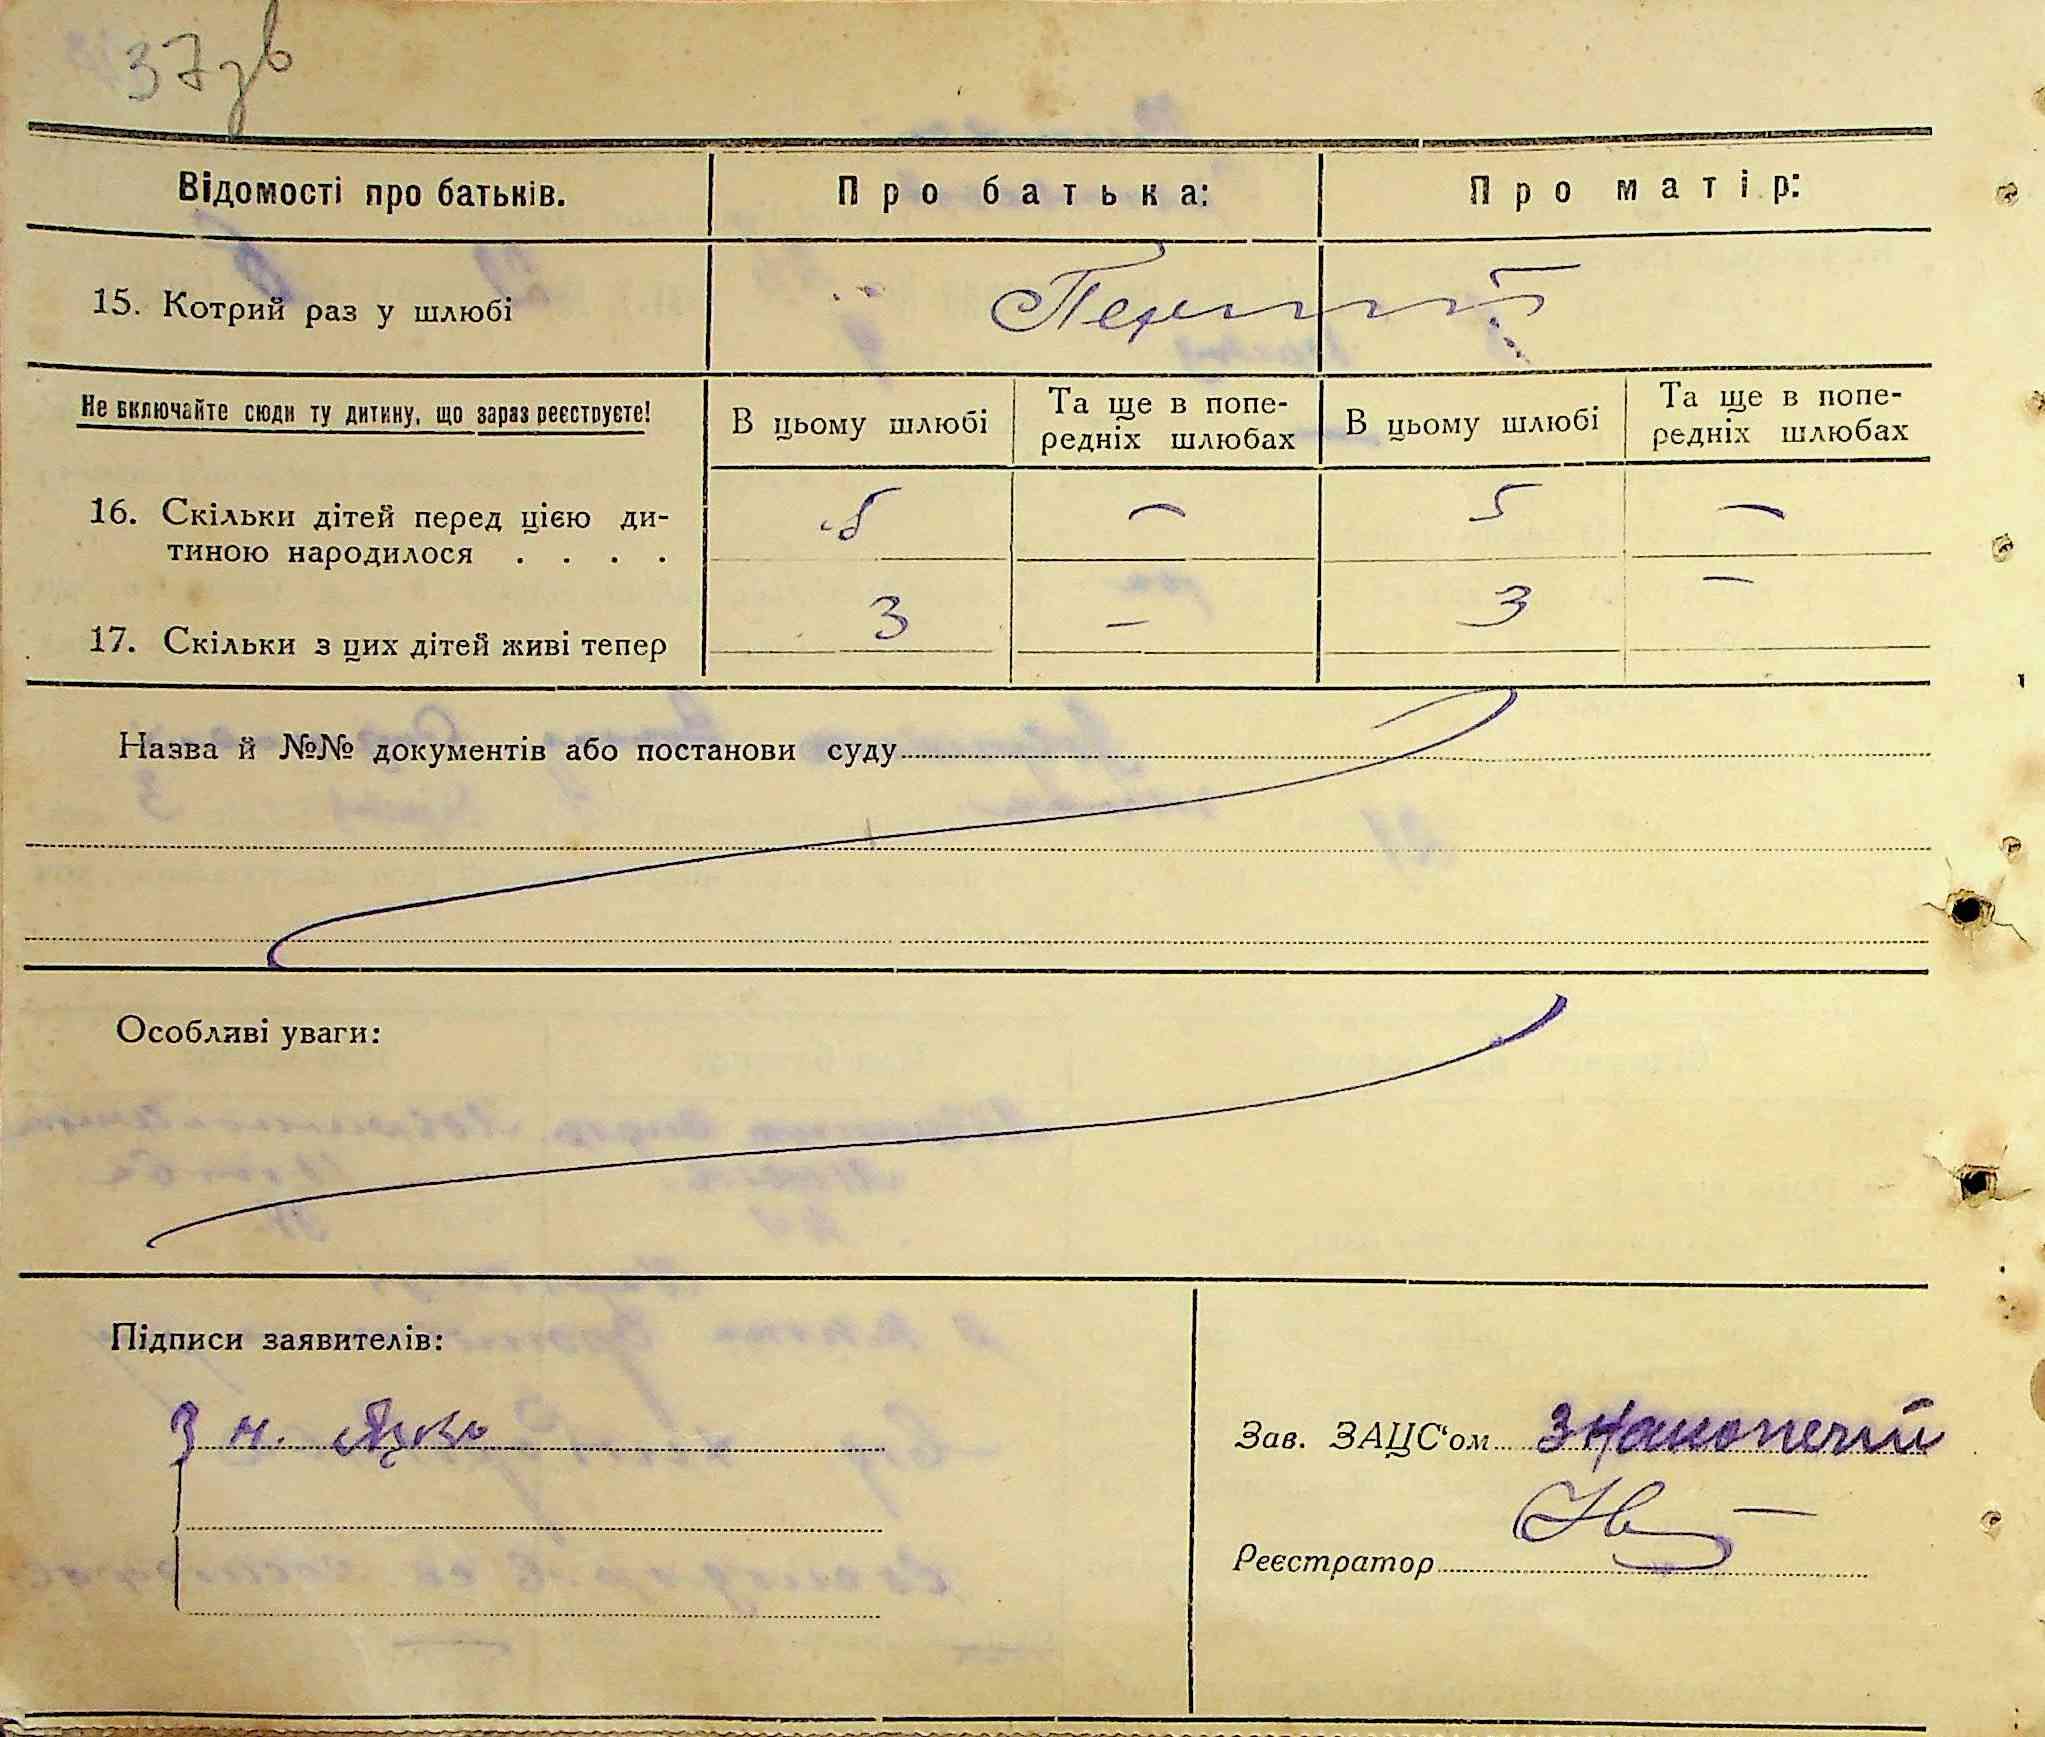 37зв
Відомості про батьків. Про батька: Про матір:
15. Котрий раз у шлюбі Перший
Не включайте сюди ту дитину, що зараз реєструєте! В цьому шлюбі Та ще в попе- В цьому шлюбі Та ще в попе-
редніх шлюбах редніх шлюбах
16. Скільки дітей перед цією ди- 5 — 5 —
тиною народилося . . . .
17. Скільки з цих дітей живі тепер 3 — 3 —
Назва й №№ документів або постанови суду
Особливі уваги:
Підписи заявителів:
Зав. ЗАЦС'ом
Реєстратор